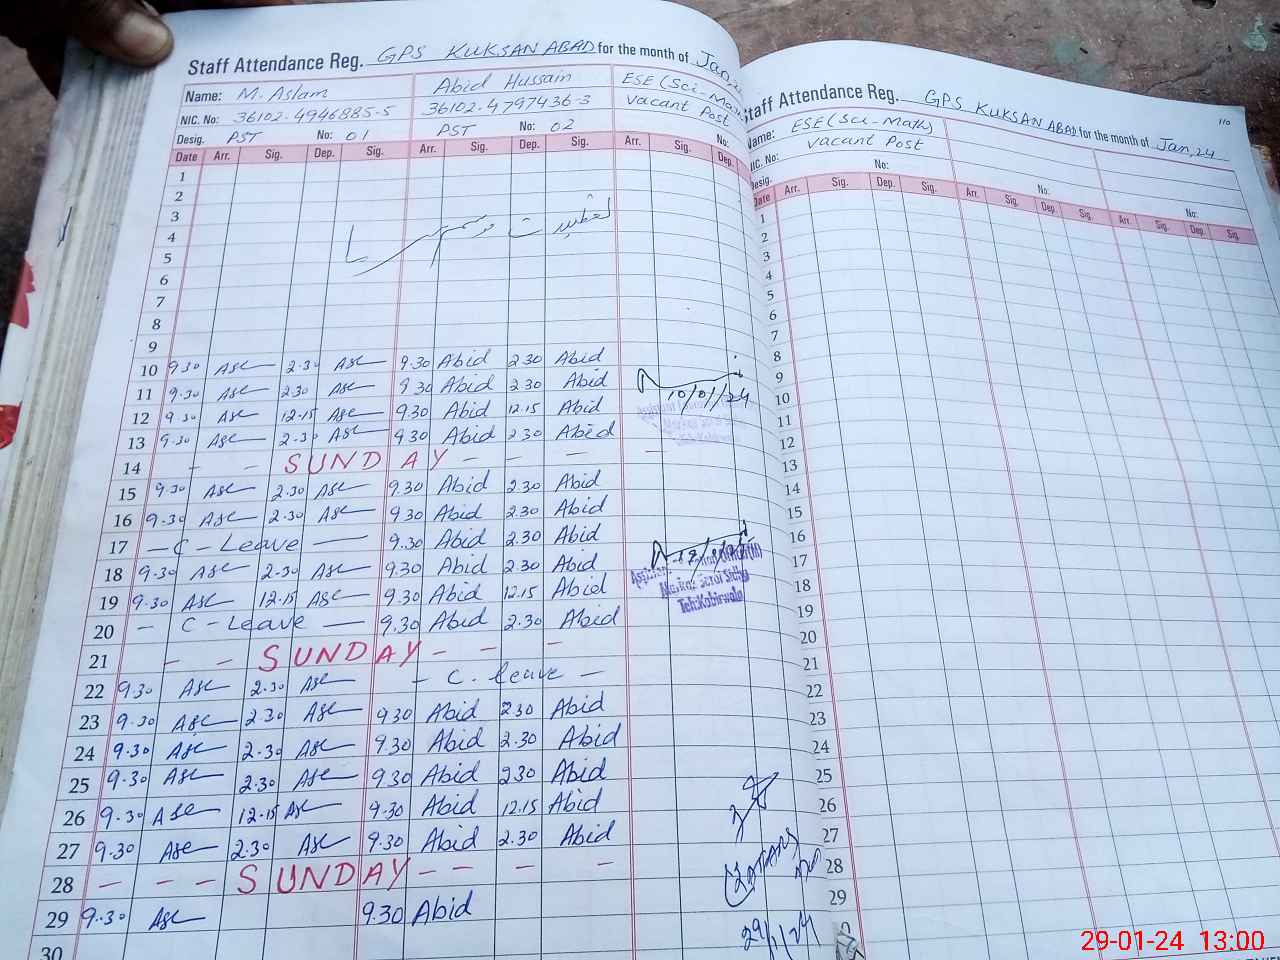 Staff Attendance Reg. GPS KUKSAN ABAD for the month of Jan,
Name: M. Aslam Abid Hussain ESE (Sci-Math
NIC. No: 36102-4946885-5 36102-4797436-3 Vacant Post
Desig. PST No: 01 PST No: 02 No:
Date Arr. Sig. Dep. Sig. Arr. Sig. Dep. Sig. Arr. Sig. Dep.
1
2
3
4
5
6
7
8
9
10 9.30 2.30 9.30 Abid 2.30 Abid
11 9.30 2.30 9.30 Abid 2.30 Abid 10/01/24
12 9.30 12.15 9.30 Abid 12.15 Abid
13 9.30 2.30 9.30 Abid 2.30 Abid
14 - - SUNDAY - - - -
15 9.30 2.30 9.30 Abid 2.30 Abid
16 9.30 2.30 9.30 Abid 2.30 Abid
17 - C - Leave - 9.30 Abid 2.30 Abid
18 9.30 2.30 9.30 Abid 2.30 Abid
19 9.30 12.15 9.30 Abid 12.15 Abid
Teh:Kabirwala
20 - C - Leave - 9.30 Abid 2.30 Abid
21 - - SUNDAY - - -
22 9.30 2.30 - C. leave -
23 9.30 2.30 9.30 Abid 2.30 Abid
24 9.30 2.30 9.30 Abid 2.30 Abid
25 9.30 2.30 9.30 Abid 2.30 Abid
26 9.30 12.15 9.30 Abid 12.15 Abid
27 9.30 2.30 9.30 Abid 2.30 Abid
28 - - - SUNDAY - - - -
29 9.30 9.30 Abid
29/1/24
30
110
Staff Attendance Reg. GPS KUKSAN ABAD for the month of Jan,24
Name: ESE (Sci-Math)
NIC. No: Vacant Post
Desig. No: No: No:
Date Arr. Sig. Dep. Sig. Arr. Sig. Dep. Sig. Arr. Sig. Dep. Sig.
1
2
3
4
5
6
7
8
9
10
11
12
13
14
15
16
17
18
19
20
21
22
23
24
25
26
27
28
29
29-01-24 13:00